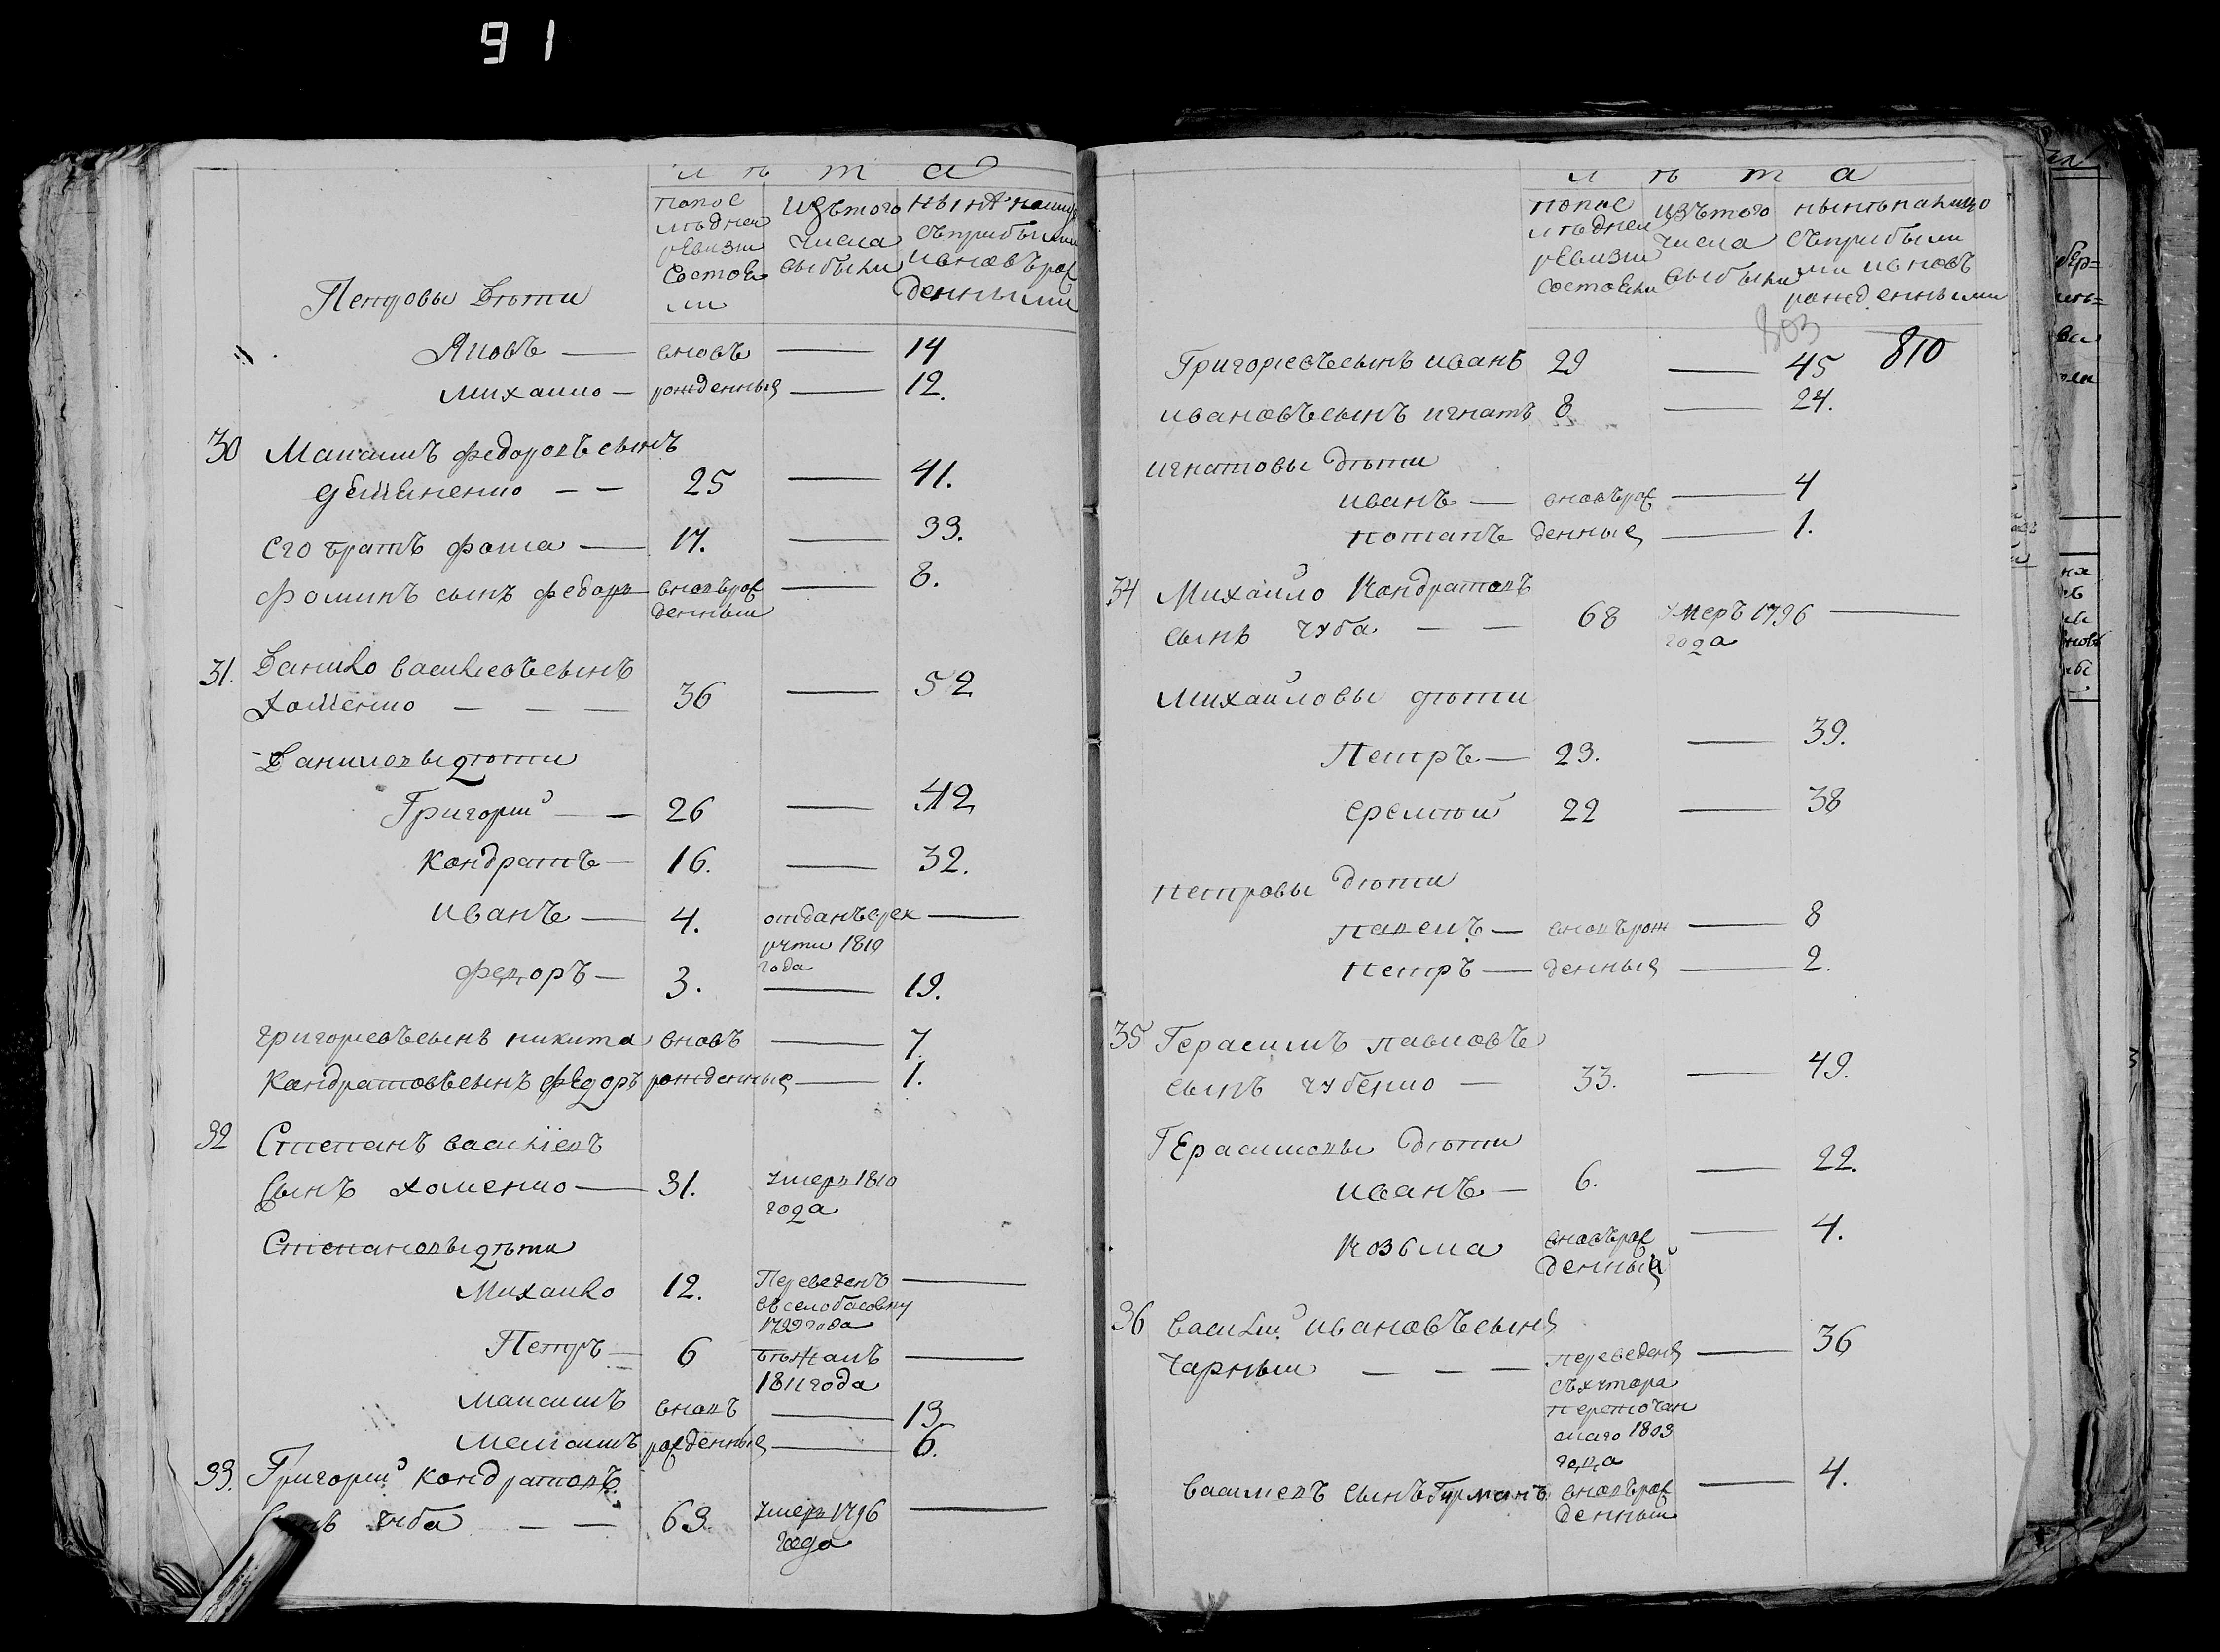 91
лѣта
попос
лѣдней
ревизи
состоя
ли
изътого
числа
выбыли
нынѣ налицо
съприбылыми
ивновъ рож
денными
Петровы Дѣти
Яковъ — вновь — 14
михаило — рожденныя — 12.
30 Максимъ федоровъ сынъ
— — 25 — 41.
его братъ фома — 17. — 33.
фоминъ сынъ федоръ вновърож — 8.
денныи
31. Данило васильевъсынъ
Хоменко — — — 36 — 52
Даниловыдѣти
Григории — — 26 — 42
Кондратъ — 16. — 32.
иванъ — 4. отданъврек —
рути 1810
года
федоръ — 3. — 19.
григорьевъсынъ никита вновь — 7.
Кондратовъсынъ федоръ рожденныя — 1.
32 Степанъ василіевъ
Сынъ хоменко — 31. умеръ 1810
года
Степановыдѣти
Михаило 12. Переведенъ —
въ село басовку
1799 года
Петръ — 6 бѣжалъ —
1811 года
максимъ вновъ — 13.
рожденныя — 6.
33. Григории Кондратовъ
Сынъ чуба — — 63. умеръ 1796 —
года
лѣта
попос
лѣдней
ревизи
состояли
изътого
числа
выбыли
нынѣналицо
съприбылы
ми ивновъ
рожденными
803
810
Григорьевъсынъ иванъ 29 — 45
ивановъсынъ игнатъ 8 — 24.
игнатовы дѣти
иванъ — вновърож — 4
потапъ денныя — 1.
34 Михайло Кондратовъ
сынъ чуба — — 68 умеръ 1796 —
года
михайловы дѣти
Петръ — 23. — 39.
еремѣй 22 — 38
петровы дѣти
павелъ — вновърож — 8
петръ — денныя — 2.
35 Герасимъ павловъ
сынъ чубенко — 33. — 49.
Герасимовы дѣти
иванъ — 6. — 22.
козьма вновърож — 4.
денный
36 василий ивановъсынъ
чарныи — — — переведенъ — 36
съхутора
1803
года
василевъ сынъ вновърож — 4.
денныи